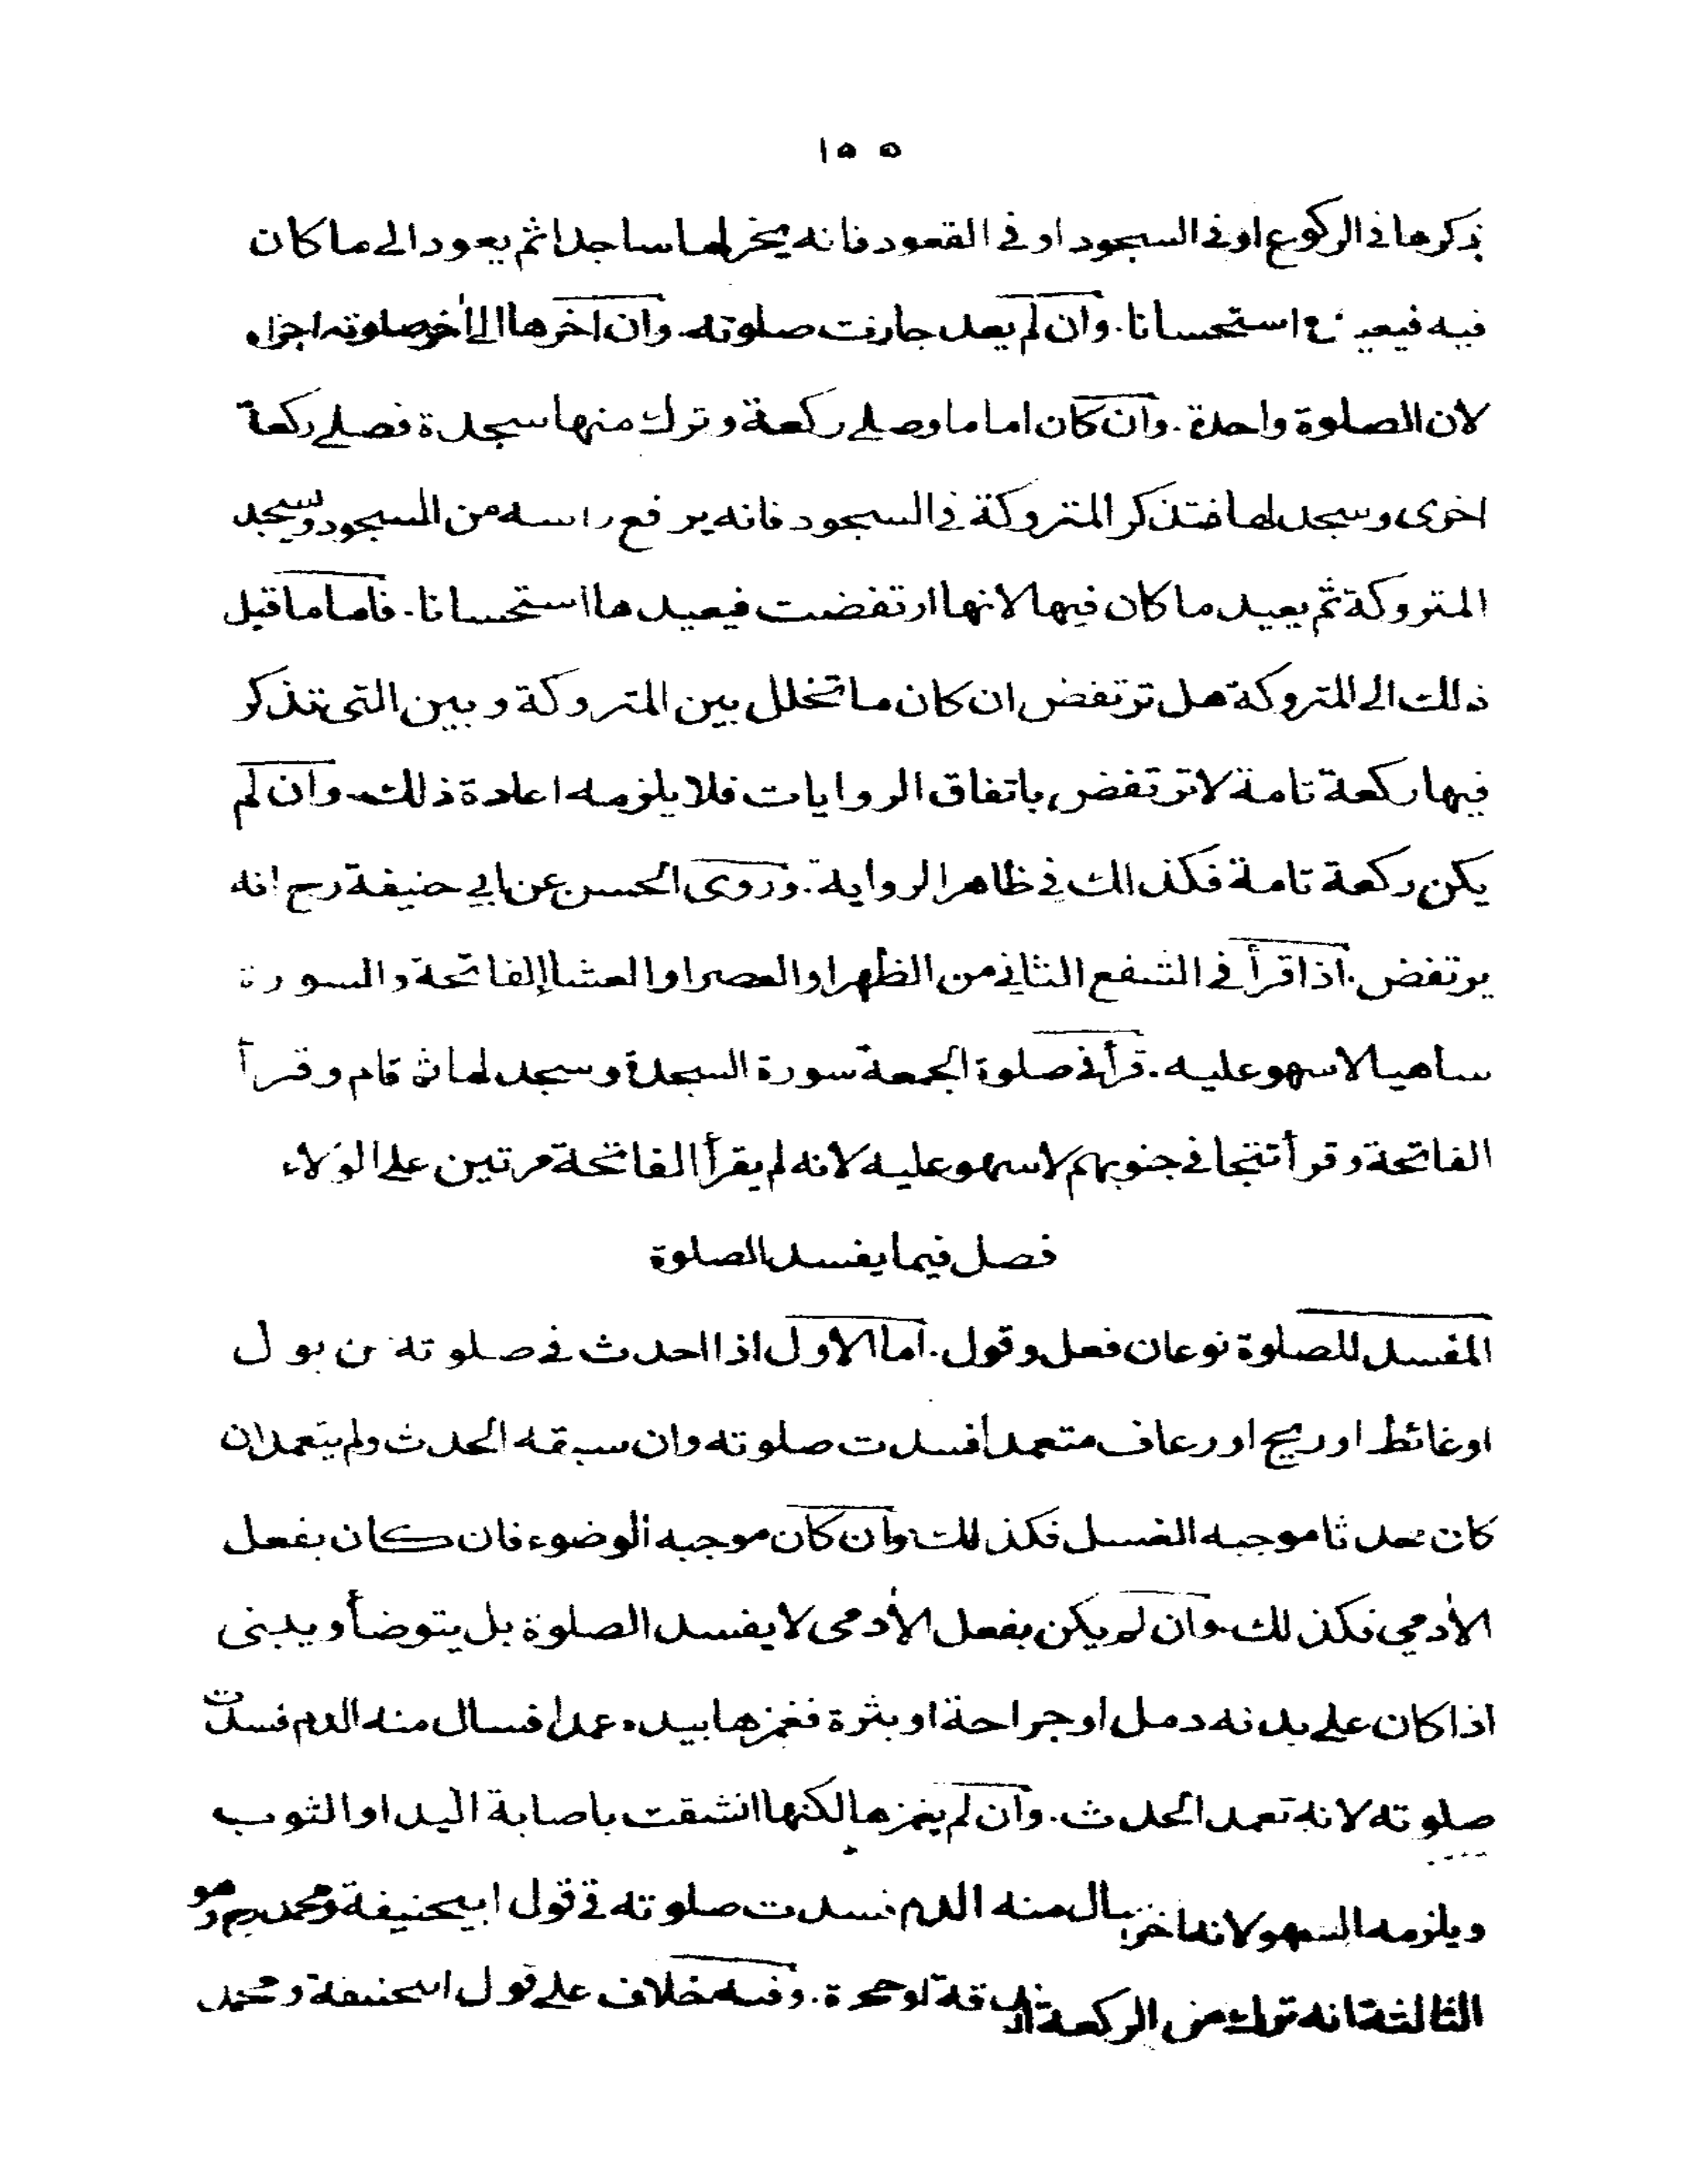 ١٥٥
ذكرها فى الركوع او فى السجود او فى القعود فانه يخر لها ساجدا ثم يعود الى ما كان
فيه استحسانا. وان لم يعد جازت صلوته. وان اخرها الى اٰخر صلوته اجزاه
لان الصلوة واحدة. وان كان اماما وصلى ركعة وترك منها سجدة فصلى ركعة
اخرى وسجد لها فتذكر المتروكة فى السجود فانه يرفع راسه من السجود ويسجد
المتروكة ثم يعيد ما كان فيها لانها ارتفضت فيعيدها استحسانا. فاما ما قبل
ذلك الى المتروكة هل ترتفض ان كان ما تخلل بين المتروكة وبين التى تذكر
فيها ركعة تامة لا ترتفض باتفاق الروايات فلا يلزمه اعادة ذلك. وان لم
يكن ركعة تامة فكذالك فى ظاهر الرواية. وروى الحسن عن ابي حنيفة رح انه
يرتفض. اذا قرأ فى الشفع الثانى من الظهر او العصر او العشاء الفاتحة والسورة
ساهيا لا سهو عليه. قرأ فى صلوة الجمعة سورة السجدة وسجد لها ثم قام وقرأ
الفاتحة وقرأ تتجافى جنوبهم لا سهو عليه لانه لم يقرأ الفاتحة مرتين على الولاء
فصل فيما يفسد الصلوة
المفسد للصلوة نوعان فعل وقول. اما الاول اذا احدث فى صلوته من بول
او غائط او ريح او رعاف متعمدا فسدت صلوته وان سبقه الحدث ولم يتعمد ان
كان حدثا موجبه الغسل فكذلك وان كان موجبه الوضوء فان كان بفعل
الاٰدمي فكذلك. وان لم يكن بفعل الاٰدمى لا يفسد الصلوة بل يتوضأ ويبنى
اذا كان على بدنه دمل او جراحة او بثرة فغمزها بيده عمدا فسال منه الدم فسدت
صلوته لانه تعمد الحدث. وان لم يغمزها لكنها انشقت باصابة اليد او الثوب
ويلزمه السهو لانه اخر سال منه الدم فسدت صلوته فى قول ابيحنيفة ومحمد رح وهو
الثالثة انه ترك من الركعة وفيه خلاف على قول ابيحنيفة ومحمد